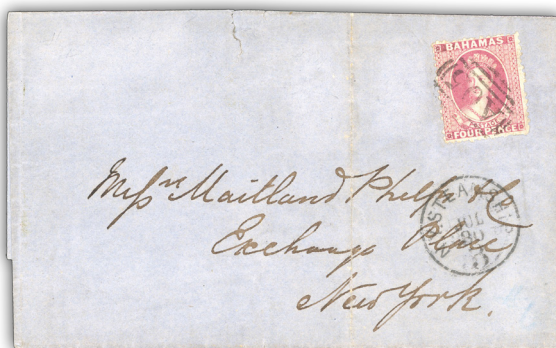 BAHAMAS
FOUR PENCE
Mess^rs Maitland Phelps & Co
Exchange Place
New York.
N.Y. STEAMSHIP
JUL
30
10